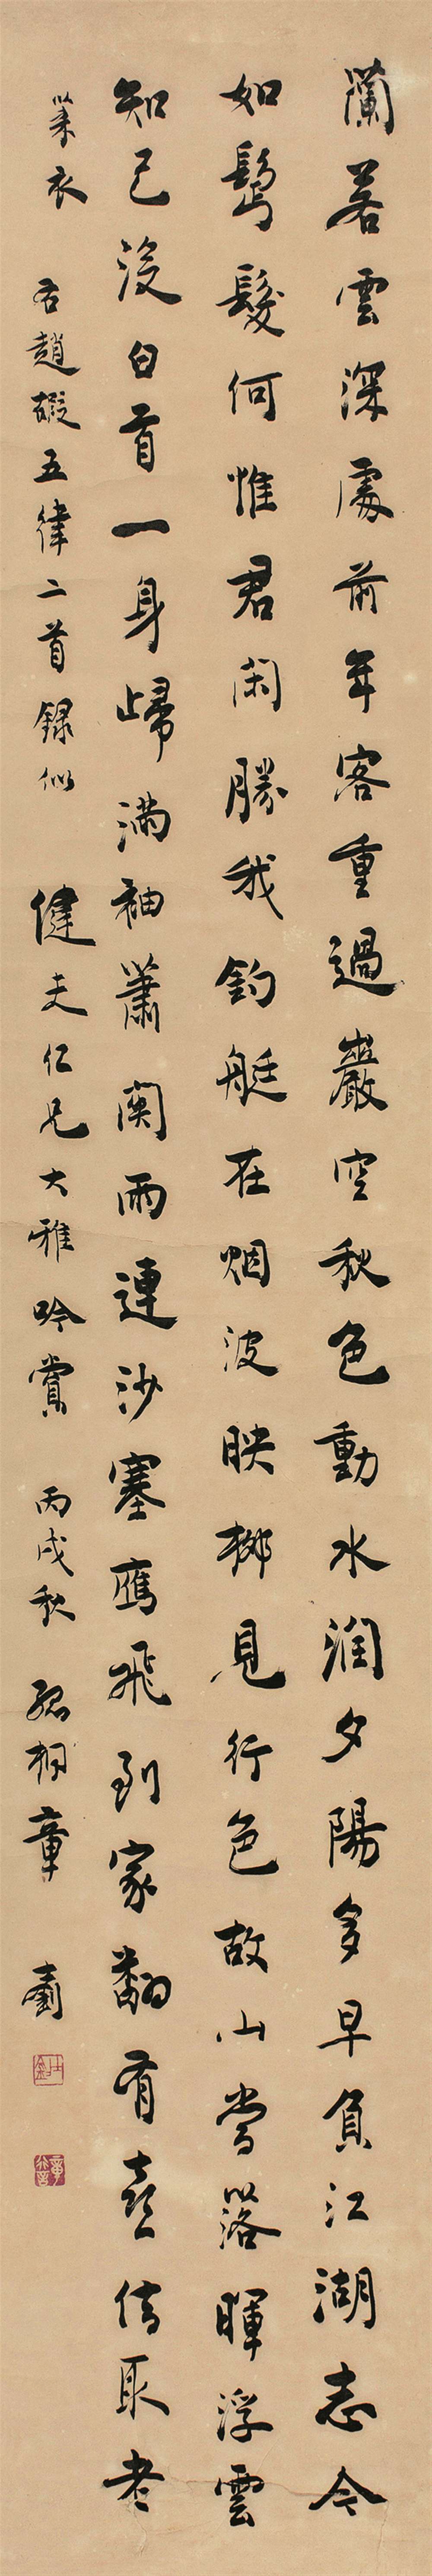 蘭若雲深處前年客重過巖空秋色動水濶夕陽多早負江湖志今
如鬢髮何惟君閑勝我釣艇在烟波映柳見行色故山當落暉浮雲
知己沒白首一身歸滿袖蕭關雨連沙塞鴈飛到家翻有喜借取老
萊衣 右趙嘏五律二首錄似 健夫仁兄大雅吟賞 丙戌秋 孤桐章
士釗
章行嚴